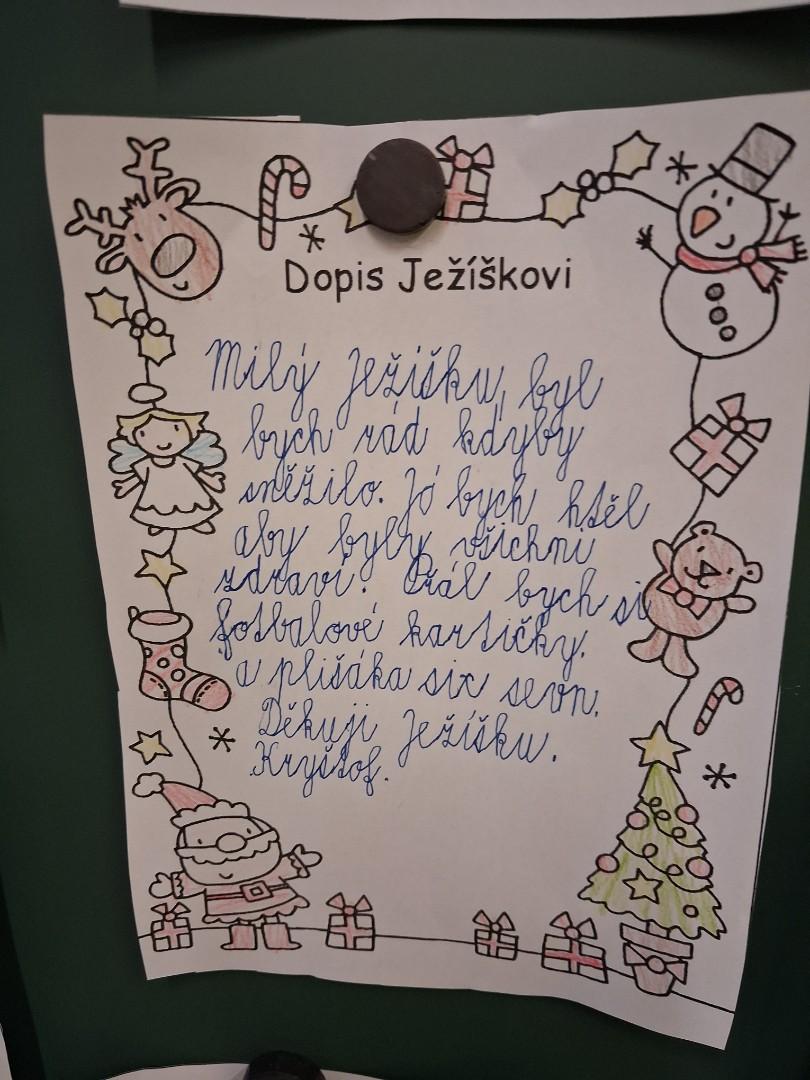 Dopis Ježíškovi
Milý Ježíšku, byl
bych rád kdyby
sněžilo. Já bych htěl
aby byly všichni
zdraví. Přál bych si
fotbalové kartičky.
a plišáka six sevn.
Děkuji Ježíšku.
Kryštof.